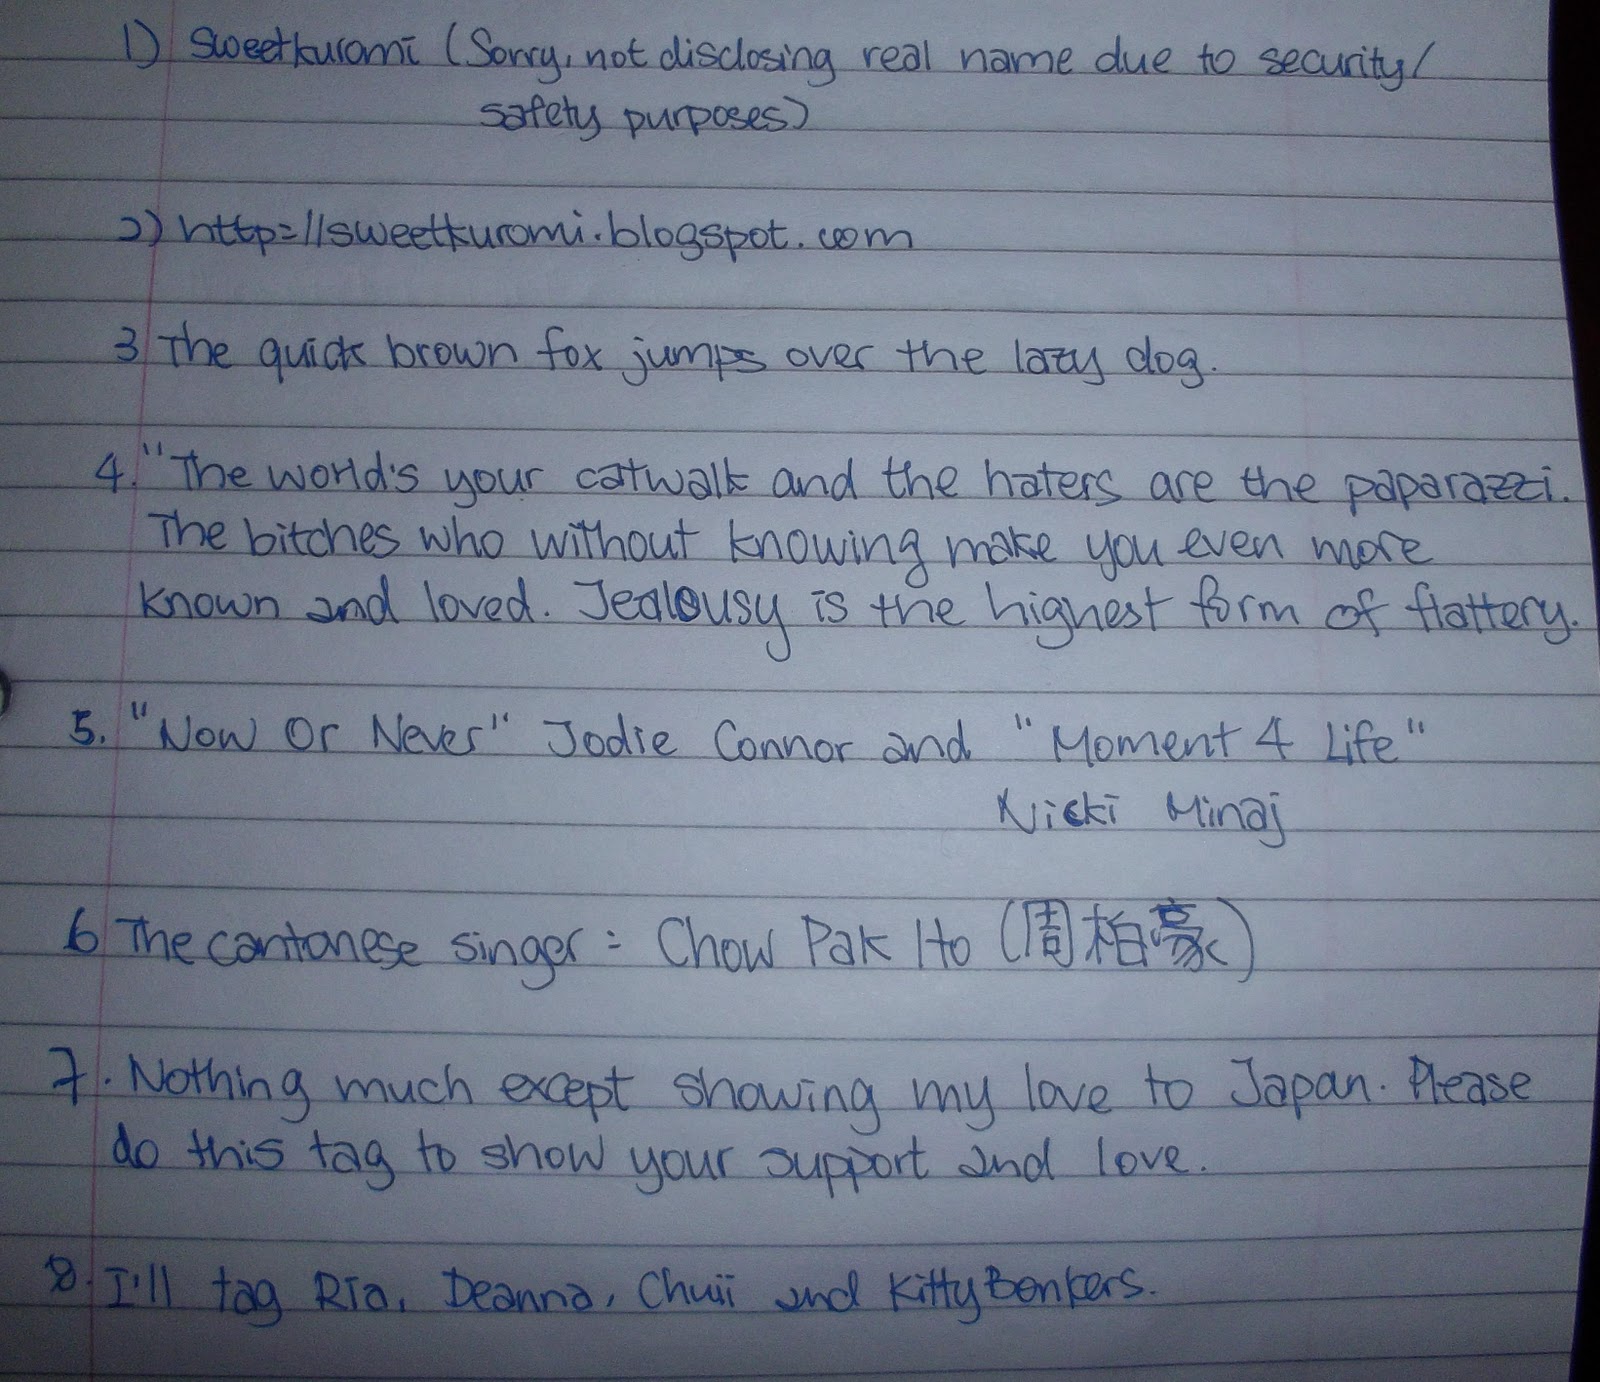 1) Sweetkuromi (Sorry, not disclosing real name due to security/
safety purposes)
2) http://sweetkuromi.blogspot.com
3 The quick brown fox jumps over the lazy dog.
4. "The world's your catwalk and the haters are the paparazzi.
The bitches who without knowing make you even more
known and loved. Jealousy is the highest form of flattery.
5. "Now Or Never" Jodie Connor and "Moment 4 Life"
Nicki Minaj
6 The cantonese singer: Chow Pak Ho (周柏豪)
7. Nothing much except showing my love to Japan. Please
do this tag to show your support and love.
8. I'll tag Ria, Deanna, Chuii and KittyBonkers.